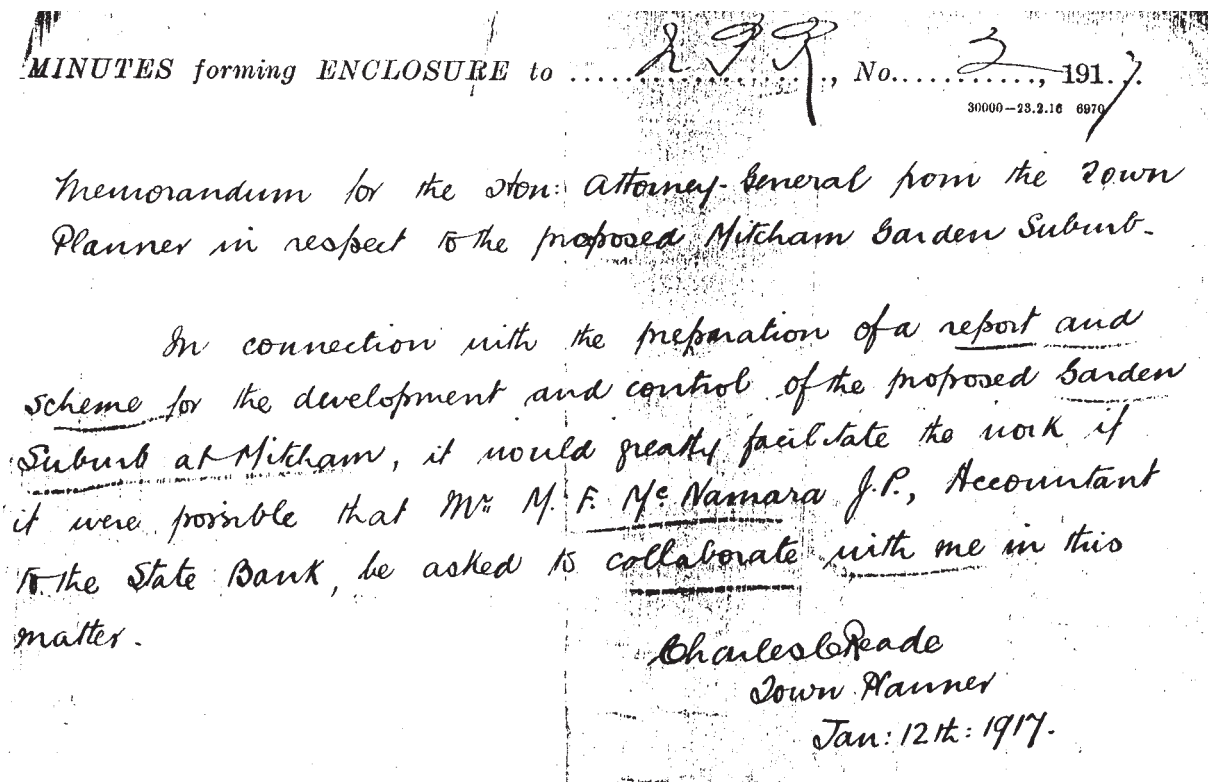 MINUTES forming ENCLOSURE to ........................, No. 2, 1917.
30000—23.2.16 6970
Memorandum for the Hon: Attorney-General from the Town
Planner in respect to the proposed Mitcham Garden Suburb.
In connection with the preparation of a report and
scheme for the development and control of the proposed Garden
Suburb at Mitcham, it would greatly facilitate the work if
it were possible that Mr. M. F. McNamara J.P., Accountant
to the State Bank, be asked to collaborate with me in this
matter.
Charles C Reade
Town Planner
Jan: 12th: 1917.